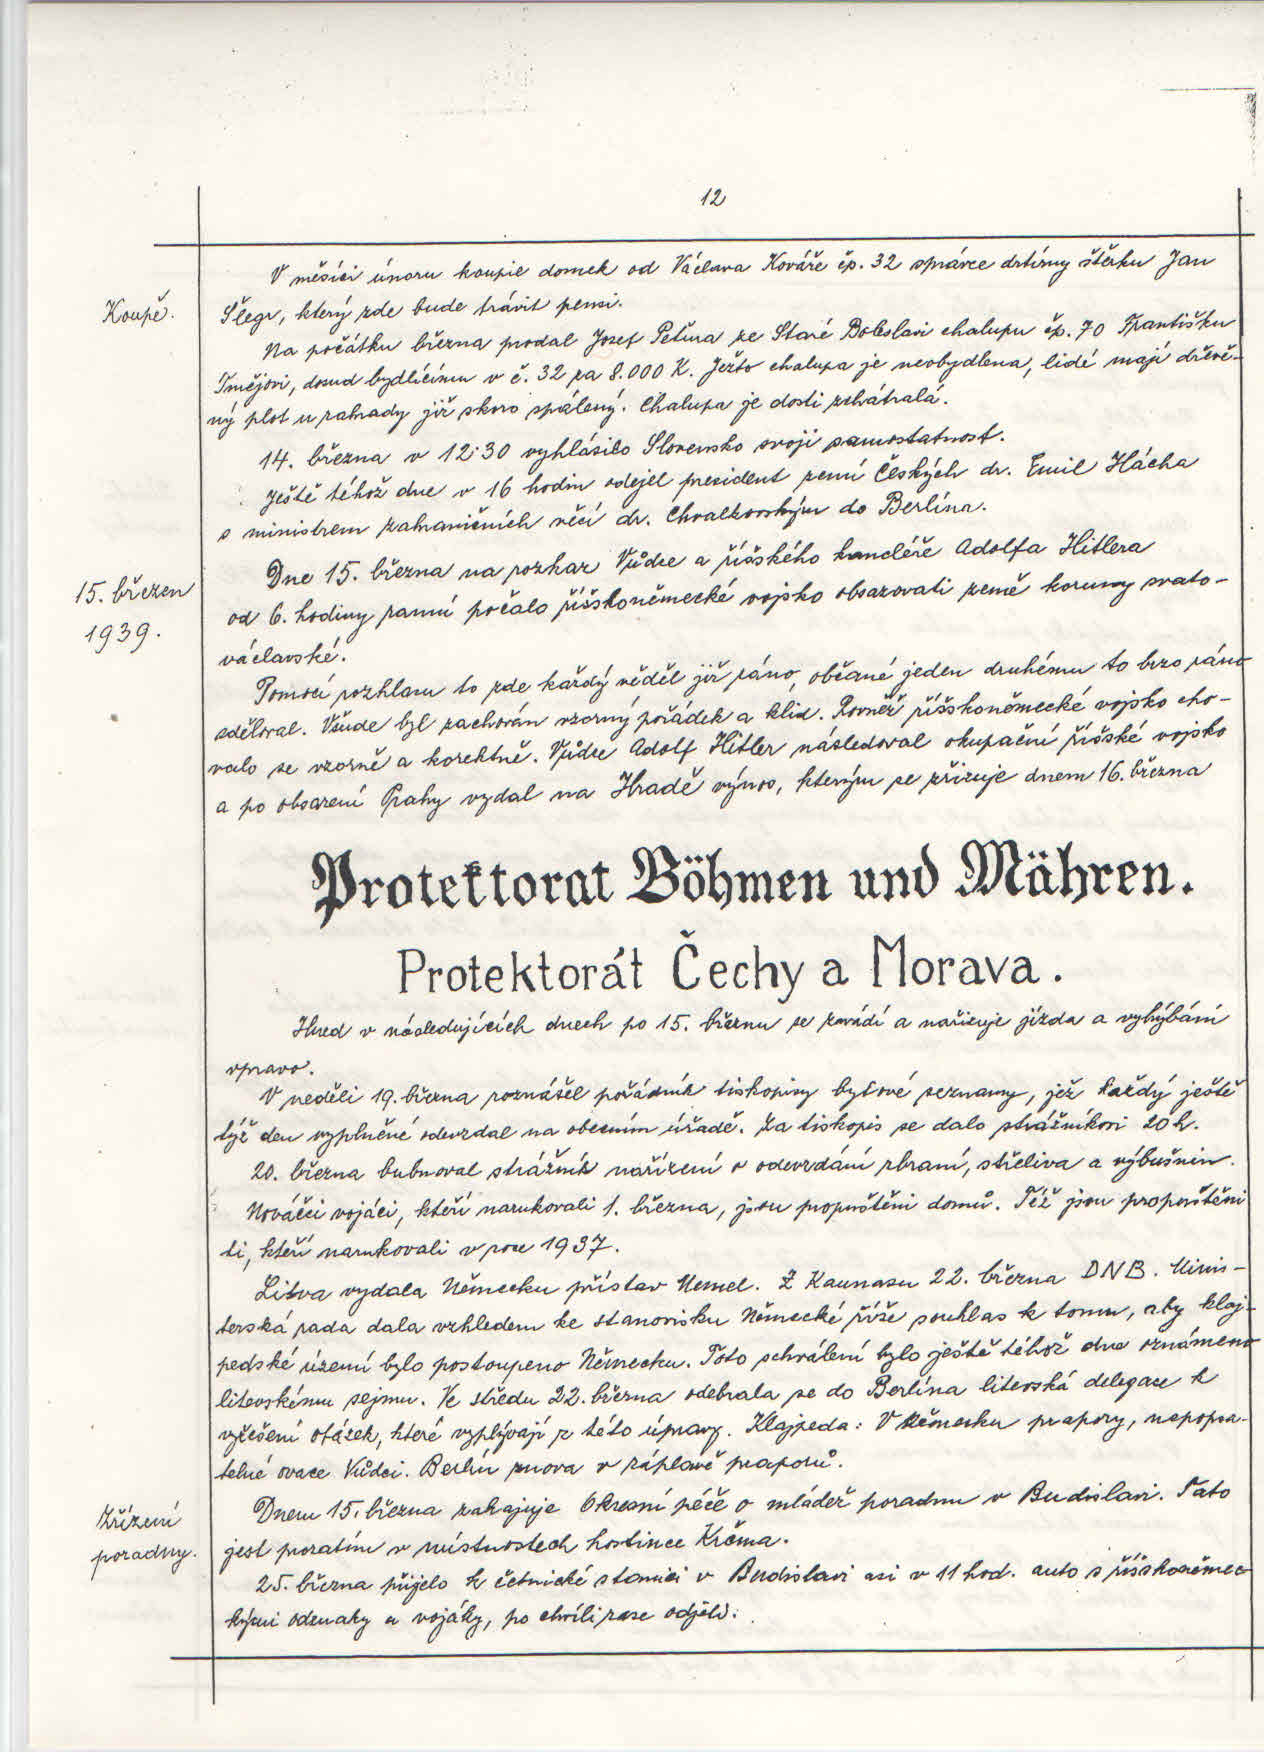 12
V měsíci únoru koupil domek od Václava Kováře čp. 32 správce drtírny štěrku Jan
Koupě.
Šlegr, který zde bude trávit pensi.
Na počátku března prodal Josef Peťura ze Staré Boleslavi chalupu čp. 70 Františku
Tmějovi, dosud bydlícímu v č. 32 za 8.000 K. Ježto chalupa je neobydlena, lidé mají dřevě-
ný plot u zahrady již skoro spálený. Chalupa je dosti zchátralá.
14. března v 12·30 vyhlásilo Slovensko svoji samostatnost.
Ještě téhož dne v 16 hodin odejel president zemí Českých dr. Emil Hácha
s ministrem zahraničních věcí dr. Chvalkovským do Berlína.
15. březen
1939.
Dne 15. března na rozkaz Vůdce a říšského kancléře Adolfa Hitlera
od 6. hodiny ranní počalo říšskoněmecké vojsko obsazovati země koruny svato-
václavské.
Pomocí rozhlasu to zde každý věděl již ráno, občané jeden druhému to brzo ráno
sděloval. Všude byl zachován vzorný pořádek a klid. Rovněž říšskoněmecké vojsko cho-
valo se vzorně a korektně. Vůdce Adolf Hitler následoval okupační říšské vojsko
a po obsazení Prahy vydal na Hradě výnos, kterým se zřizuje dnem 16. března
Protektorat Böhmen und Mähren.
Protektorát Čechy a Morava.
Ihned v následujících dnech po 15. březnu se zavádí a nařizuje jízda a vyhýbání
vpravo.
V neděli 19. března roznášel pořádník tiskopisy bytové seznamy, jež každý ještě
týž den vyplněné odevzdal na obecním úřadě. Za tiskopis se dalo strážníkovi 20 h.
20. března bubnoval strážník nařízení o odevzdání zbraní, střeliva a výbušnin.
Nováčci vojáci, kteří narukovali 1. března, jsou propuštěni domů. Též jsou propuštěni
ti, kteří narukovali v roce 1937.
Litva vydala Německu přístav Memel. Z Kaunasu 22. března DNB. Minis-
terská rada dala vzhledem ke stanovisku Německé říše souhlas k tomu, aby klaj-
pedské území bylo postoupeno Německu. Toto schválení bylo ještě téhož dne oznámeno
litevskému sejmu. Ve středu 22. března odebrala se do Berlína litevská delegace k
vyřešení otázek, které vyplývají z této úpravy. Klajpeda: V Německu prapory, nepopsa-
telné ovace Vůdci. Berlín znova v záplavě praporů.
Zřízení
poradny.
Dnem 15. března zahajuje Okresní péče o mládež poradnu v Budislavi. Tato
jest prozatím v místnostech hostince Krčma.
25. března přijelo k četnické stanici v Budislavi asi v 11 hod. auto s říšskoněmec
kými odznaky a vojáky, po chvíli zase odjeli.